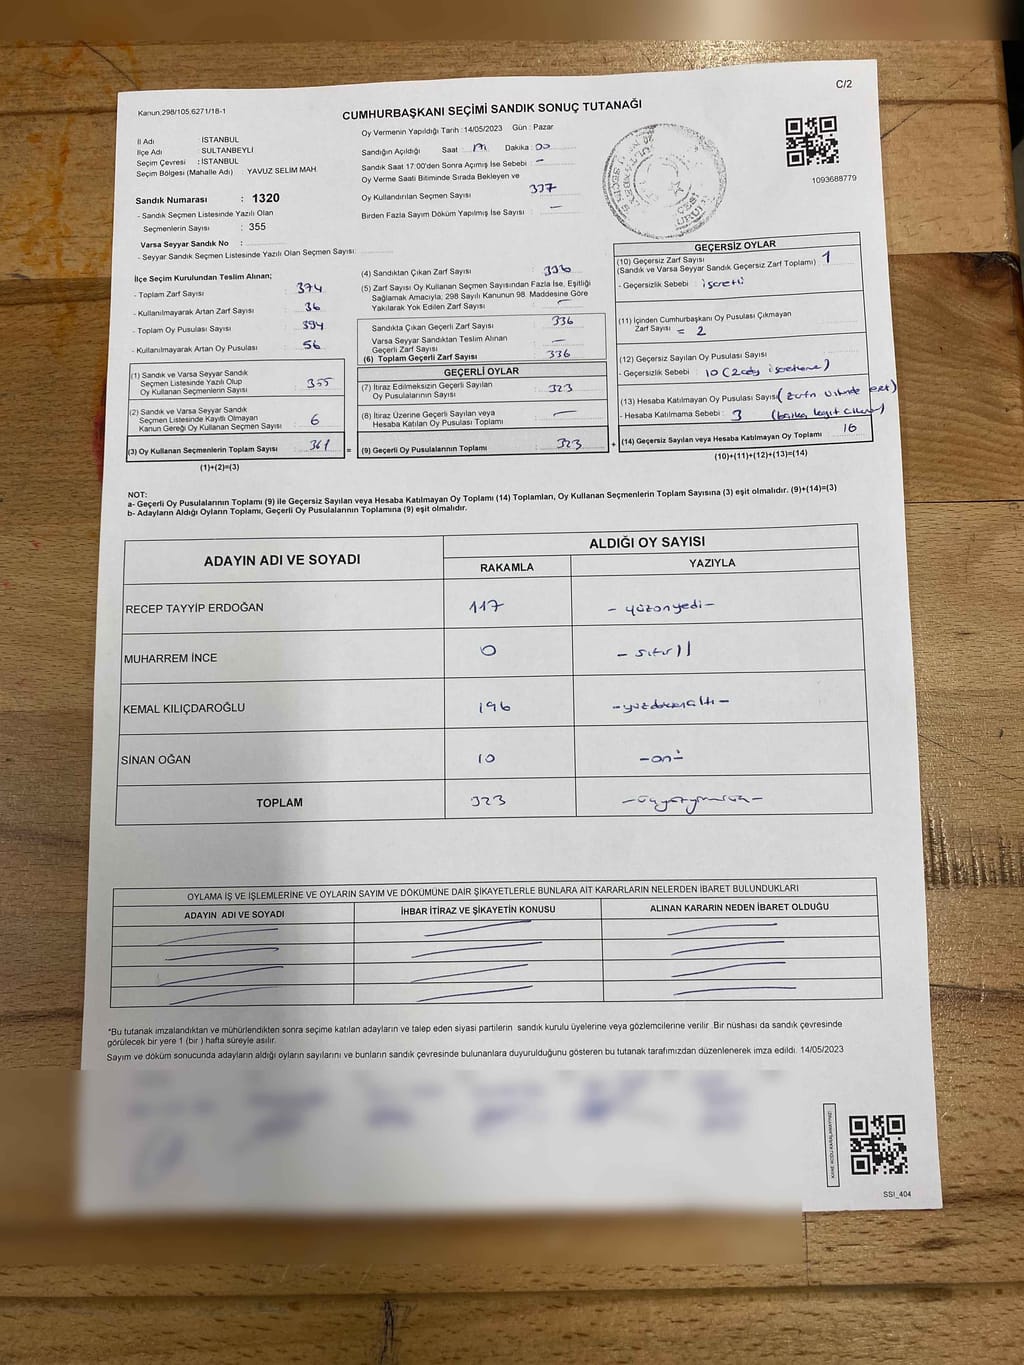 C/2
Kanun:298/105,6271/18-1
CUMHURBAŞKANI SEÇİMİ SANDIK SONUÇ TUTANAĞI
İl Adı : İSTANBUL
İlçe Adı : SULTANBEYLİ
Seçim Çevresi : İSTANBUL
Seçim Bölgesi (Mahalle Adı) : YAVUZ SELİM MAH
Sandık Numarası : 1320
- Sandık Seçmen Listesinde Yazılı Olan
Seçmenlerin Sayısı : 355
Varsa Seyyar Sandık No :
- Seyyar Sandık Seçmen Listesinde Yazılı Olan Seçmen Sayısı:
Oy Vermenin Yapıldığı Tarih :14/05/2023 Gün : Pazar
Sandığın Açıldığı Saat : Dakika : 00
Sandık Saat 17:00'den Sonra Açımış İse Sebebi : –
Oy Verme Saati Bitiminde Sırada Bekleyen ve
Oy Kullandırılan Seçmen Sayısı : 337
Birden Fazla Sayım Döküm Yapılmış İse Sayısı : –
1093688779
İlçe Seçim Kurulundan Teslim Alınan;
- Toplam Zarf Sayısı : 374
- Kullanılmayarak Artan Zarf Sayısı : 36
- Toplam Oy Pusulası Sayısı : 394
- Kullanılmayarak Artan Oy Pusulası : 56
(1) Sandık ve Varsa Seyyar Sandık
Seçmen Listesinde Yazılı Olup
Oy Kullanan Seçmenlerin Sayısı : 355
(2) Sandık ve Varsa Seyyar Sandık
Seçmen Listesinde Kayıtlı Olmayan
Kanun Gereği Oy Kullanan Seçmen Sayısı : 6
(3) Oy Kullanan Seçmenlerin Toplam Sayısı : 361
(1)+(2)=(3)
(4) Sandıktan Çıkan Zarf Sayısı : 336
(5) Zarf Sayısı Oy Kullanan Seçmen Sayısından Fazla İse, Eşitliği
Sağlamak Amacıyla, 298 Sayılı Kanunun 98. Maddesine Göre
Yakılarak Yok Edilen Zarf Sayısı : –
Sandıkta Çıkan Geçerli Zarf Sayısı : 336
Varsa Seyyar Sandıktan Teslim Alınan
Geçerli Zarf Sayısı : –
(6) Toplam Geçerli Zarf Sayısı : 336
GEÇERLİ OYLAR
(7) İtiraz Edilmeksizin Geçerli Sayılan
Oy Pusulasının Sayısı : 323
(8) İtiraz Üzerine Geçerli Sayılan veya
Hesaba Katılan Oy Pusulası Toplamı : –
= (9) Geçerli Oy Pusulalarının Toplamı : 323 +
GEÇERSİZ OYLAR
(10) Geçersiz Zarf Sayısı
(Sandık ve Varsa Seyyar Sandık Geçersiz Zarf Toplamı) : 1
- Geçersizlik Sebebi : işaretli
(11) İçinden Cumhurbaşkanı Oy Pusulası Çıkmayan
Zarf Sayısı = 2
(12) Geçersiz Sayılan Oy Pusulası Sayısı
- Geçersizlik Sebebi : 10
(13) Hesaba Katılmayan Oy Pusulası Sayısı
- Hesaba Katılmama Sebebi : 3
(14) Geçersiz Sayılan veya Hesaba Katılmayan Oy Toplamı : 16
(10)+(11)+(12)+(13)=(14)
NOT:
a- Geçerli Oy Pusulalarının Toplamı (9) ile Geçersiz Sayılan veya Hesaba Katılmayan Oy Toplamı (14) Toplamları, Oy Kullanan Seçmenlerin Toplam Sayısına (3) eşit olmalıdır. (9)+(14)=(3)
b- Adayların Aldığı Oyların Toplamı, Geçerli Oy Pusulalarının Toplamına (9) eşit olmalıdır.
ADAYIN ADI VE SOYADI ALDIĞI OY SAYISI
RAKAMLA YAZIYLA
RECEP TAYYİP ERDOĞAN 117 - yüzonyedi -
MUHARREM İNCE 0 - sıfır
KEMAL KILIÇDAROĞLU 196 - yüzdoksanaltı -
SİNAN OĞAN 10 - on -
TOPLAM 323
OYLAMA İŞ VE İŞLEMLERİNE VE OYLARIN SAYIM VE DÖKÜMÜNE DAİR ŞİKAYETLERLE BUNLARA AİT KARARLARIN NELERDEN İBARET BULUNDUKLARI
ADAYIN ADI VE SOYADI İHBAR İTİRAZ VE ŞİKAYETİN KONUSU ALINAN KARARIN NEDEN İBARET OLDUĞU
*Bu tutanak imzalandıktan ve mühürlendikten sonra seçime katılan adayların ve talep eden siyasi partilerin sandık kurulu üyelerine veya gözlemcilerine verilir .Bir nüshası da sandık çevresinde
görülecek bir yere 1 (bir ) hafta süreyle asılır.
Sayım ve döküm sonucunda adayların aldığı oyların sayılarını ve bunların sandık çevresinde bulunanlara duyurulduğunu gösteren bu tutanak tarafımızdan düzenlenerek imza edildi. 14/05/2023
SSI_404